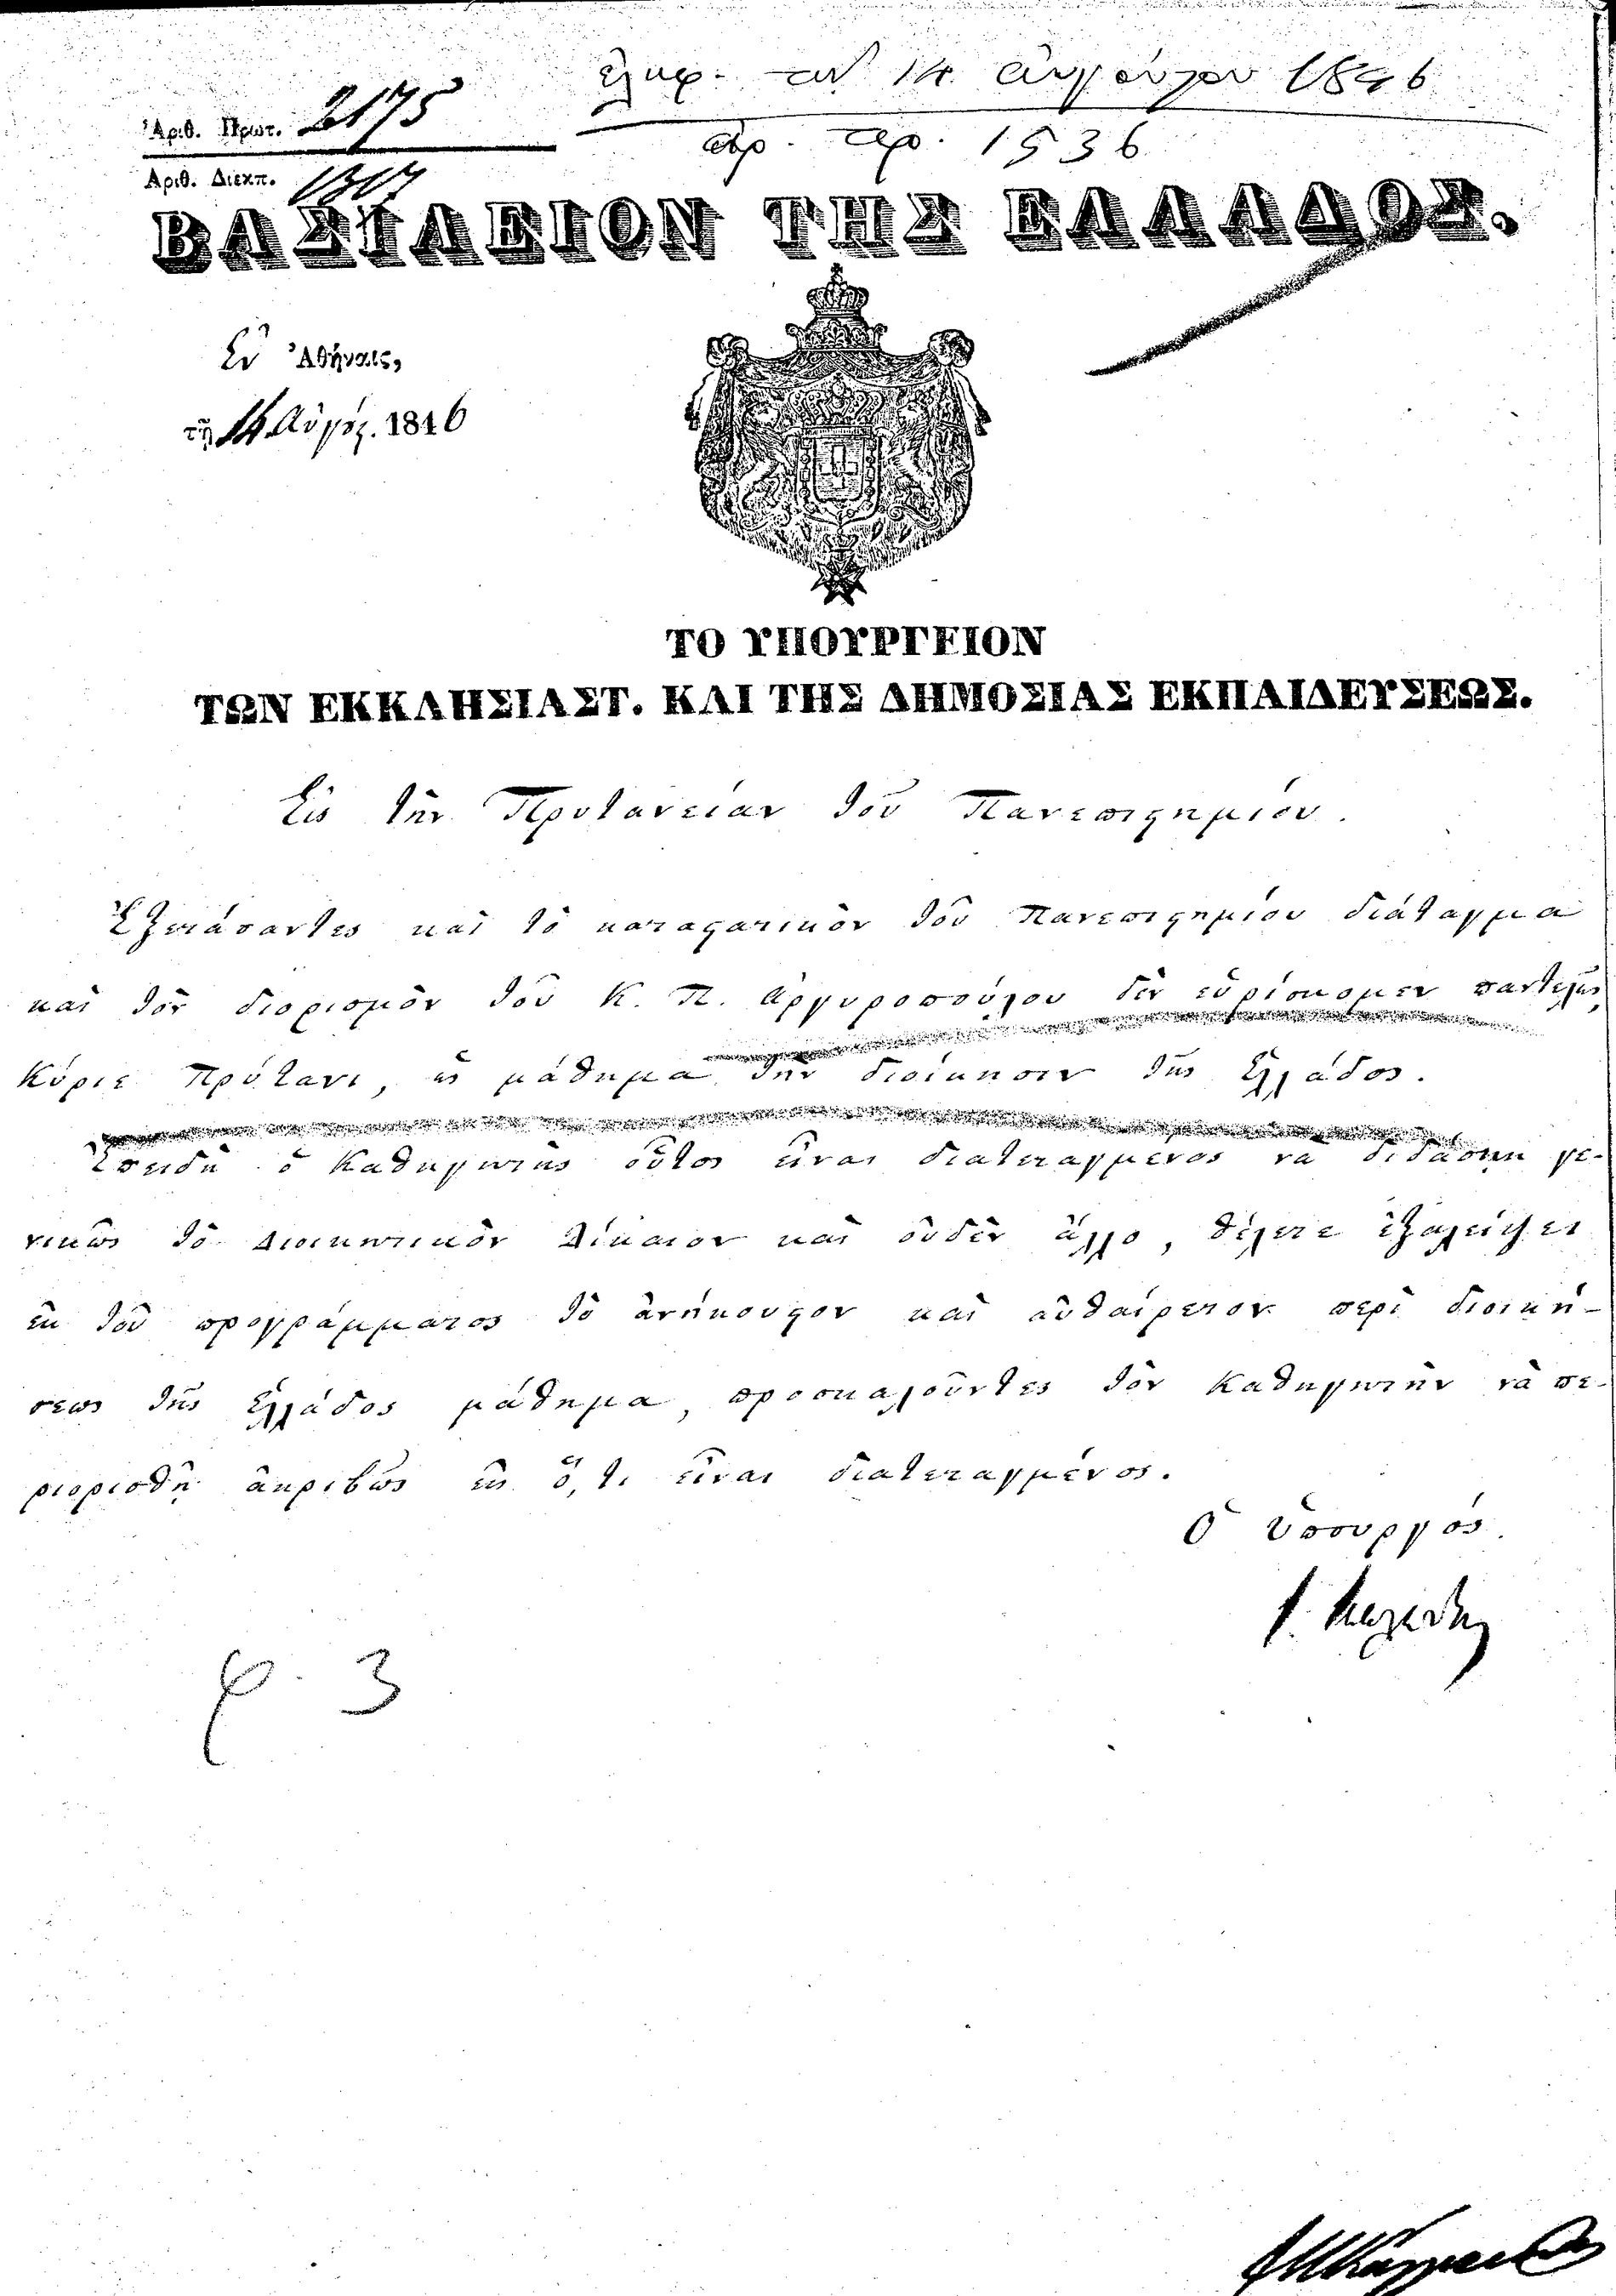 ἐλήφ. τὴν 14 αὐγούστου 1846
ἀρ. πρ. 1536
Ἀριθ. Πρωτ. 2175
Ἀριθ. Διεκπ.
ΒΑΣΙΛΕΙΟΝ ΤΗΣ ΕΛΛΑΔΟΣ.
Ἐν Ἀθήναις,
τῇ 14 Αὐγούστ. 1846
ΤΟ ΥΠΟΥΡΓΕΙΟΝ
ΤΩΝ ΕΚΚΛΗΣΙΑΣΤ. ΚΑΙ ΤΗΣ ΔΗΜΟΣΙΑΣ ΕΚΠΑΙΔΕΥΣΕΩΣ.
Εἰς τὴν Πρυτανείαν τοῦ Πανεπιστημίου.
Ἐξετάσαντες καὶ τὸ καταστατικὸν τοῦ Πανεπιστημίου διάταγμα
καὶ τὸν διορισμὸν τοῦ Κ. Π. Ἀργυροπούλου δὲν εὑρίσκομεν παντελῶς,
Κύριε Πρύτανι, ὡς μάθημα τὴν διοίκησιν τῆς Ἑλλάδος.
Ἐπειδὴ ὁ Καθηγητὴς οὗτος εἶναι διατεταγμένος νὰ διδάσκῃ γε-
νικῶς τὸ Διοικητικὸν Δίκαιον καὶ οὐδὲν ἄλλο, θέλετε ἐξαλείψει
ἐκ τοῦ προγράμματος τὸ ἀνήκουστον καὶ αὐθαίρετον περὶ διοική-
σεως τῆς Ἑλλάδος μάθημα, προσκαλοῦντες τὸν Καθηγητὴν νὰ πε-
ριορισθῇ ἀκριβῶς εἰς ὅ,τι εἶναι διατεταγμένος.
Ὁ Ὑπουργός.
φ. 3